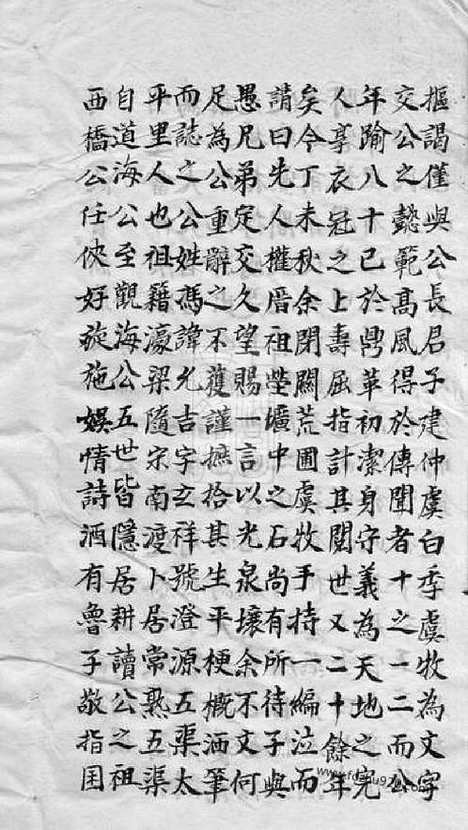 摳謁僅與公長君子建仲虞白季虞牧為文字
交公之懿範高風得於傳聞者十之一二而公
年踰八十已於鼎革初潔身守義為天地之完
人享衣冠之上壽屈指計其閱世又二十餘年
矣今丁未秋余閉關荒圃虞牧手持一編泣而
請曰先人權厝祖塋壙中之石尚有所待子與
愚兄弟定交久望賜一言以光泉壤余不文何
足為公重辭之不獲謹摭拾其生平梗概洒筆
而誌之公姓馮諱允吉字玄祥號澄源五渠太
平里人也祖籍濠梁隨宋南渡卜居常熟五渠
自道海公至觀海公五世皆隱居耕讀公之祖
西橋公任俠好施娛情詩酒有魯子敬指囷